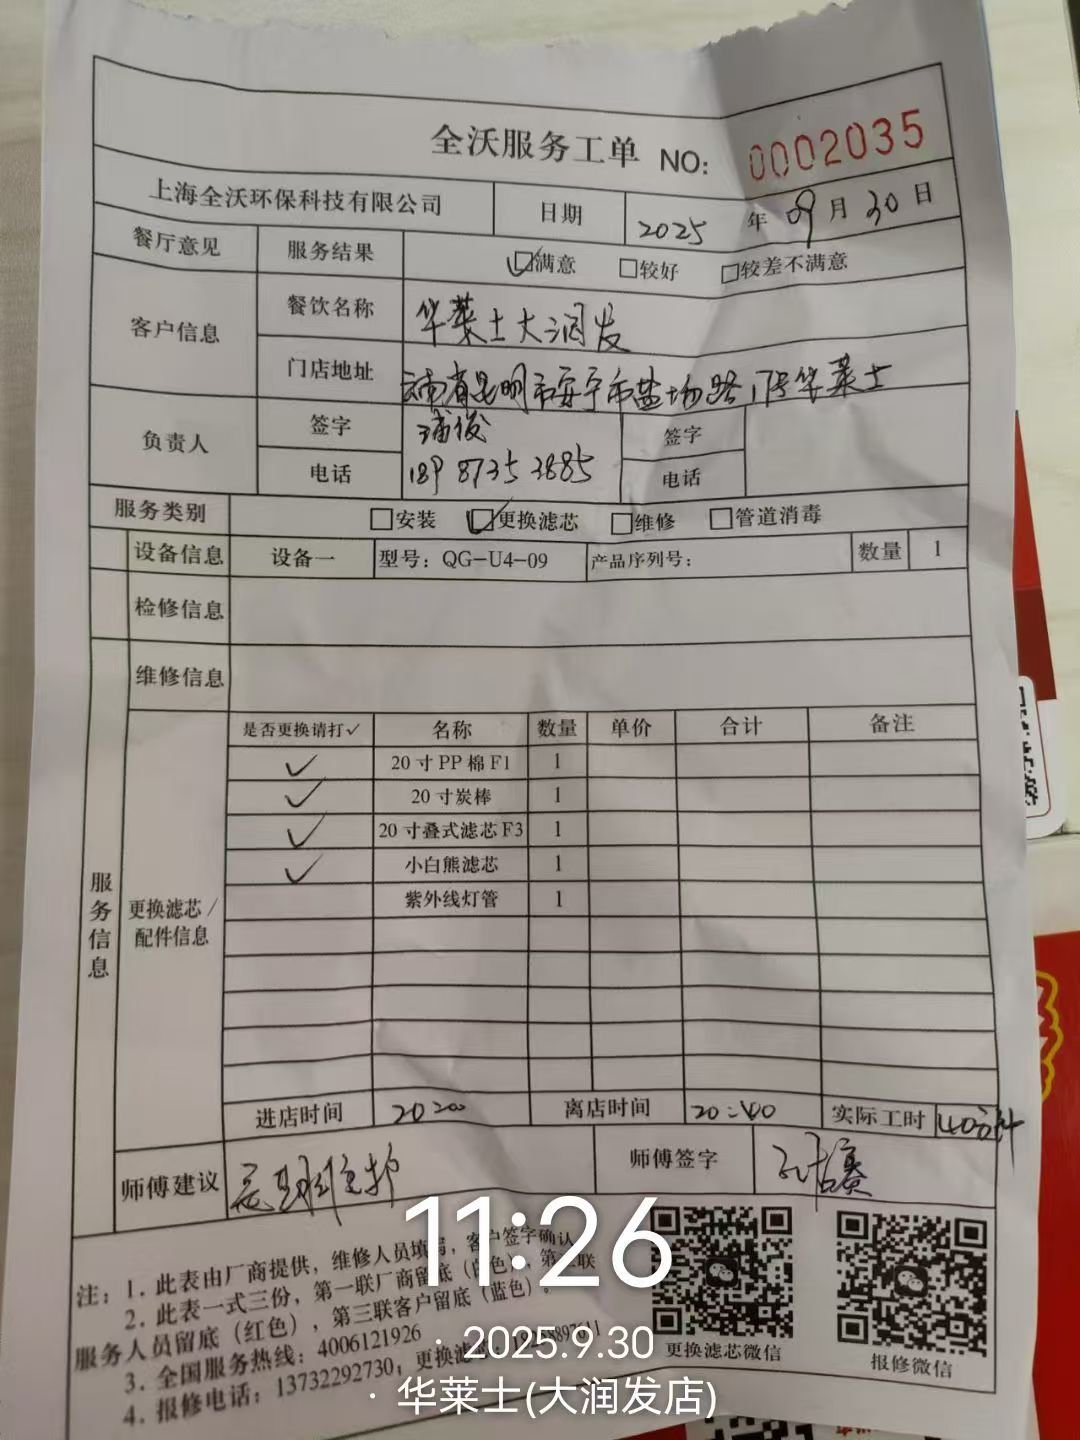 全沃服务工单 NO: 0002035
上海全沃环保科技有限公司 日期 2025 年 09 月 30 日
餐厅意见 服务结果 ☑满意 □较好 □较差不满意
客户信息 餐饮名称 华莱士大润发
门店地址 云南省昆明市安宁市盐场路17号华莱士
负责人 签字 浦俊 签字
电话 189 8735 3885 电话
服务类别 □安装 ☑更换滤芯 □维修 □管道消毒
设备信息 设备一 型号: QG-U4-09 产品序列号: 数量 1
检修信息
维修信息
服务信息
更换滤芯/配件信息
是否更换请打✓ 名称 数量 单价 合计 备注
✓ 20寸PP棉F1 1
✓ 20寸炭棒 1
✓ 20寸叠式滤芯F3 1
✓ 小白熊滤芯 1
紫外线灯管 1
进店时间 20:00 离店时间 20:40 实际工时 40分钟
师傅建议 师傅签字
注: 1. 此表由厂商提供, 维修人员填写, 客户签字确认
2. 此表一式三份, 第一联厂商留底(白色), 第二联
服务人员留底(红色), 第三联客户留底(蓝色)。
3. 全国服务热线: 4006121926
4. 报修电话: 13732292730; 更换滤芯:
更换滤芯微信 报修微信
11:26
· 2025.9.30
· 华莱士(大润发店)